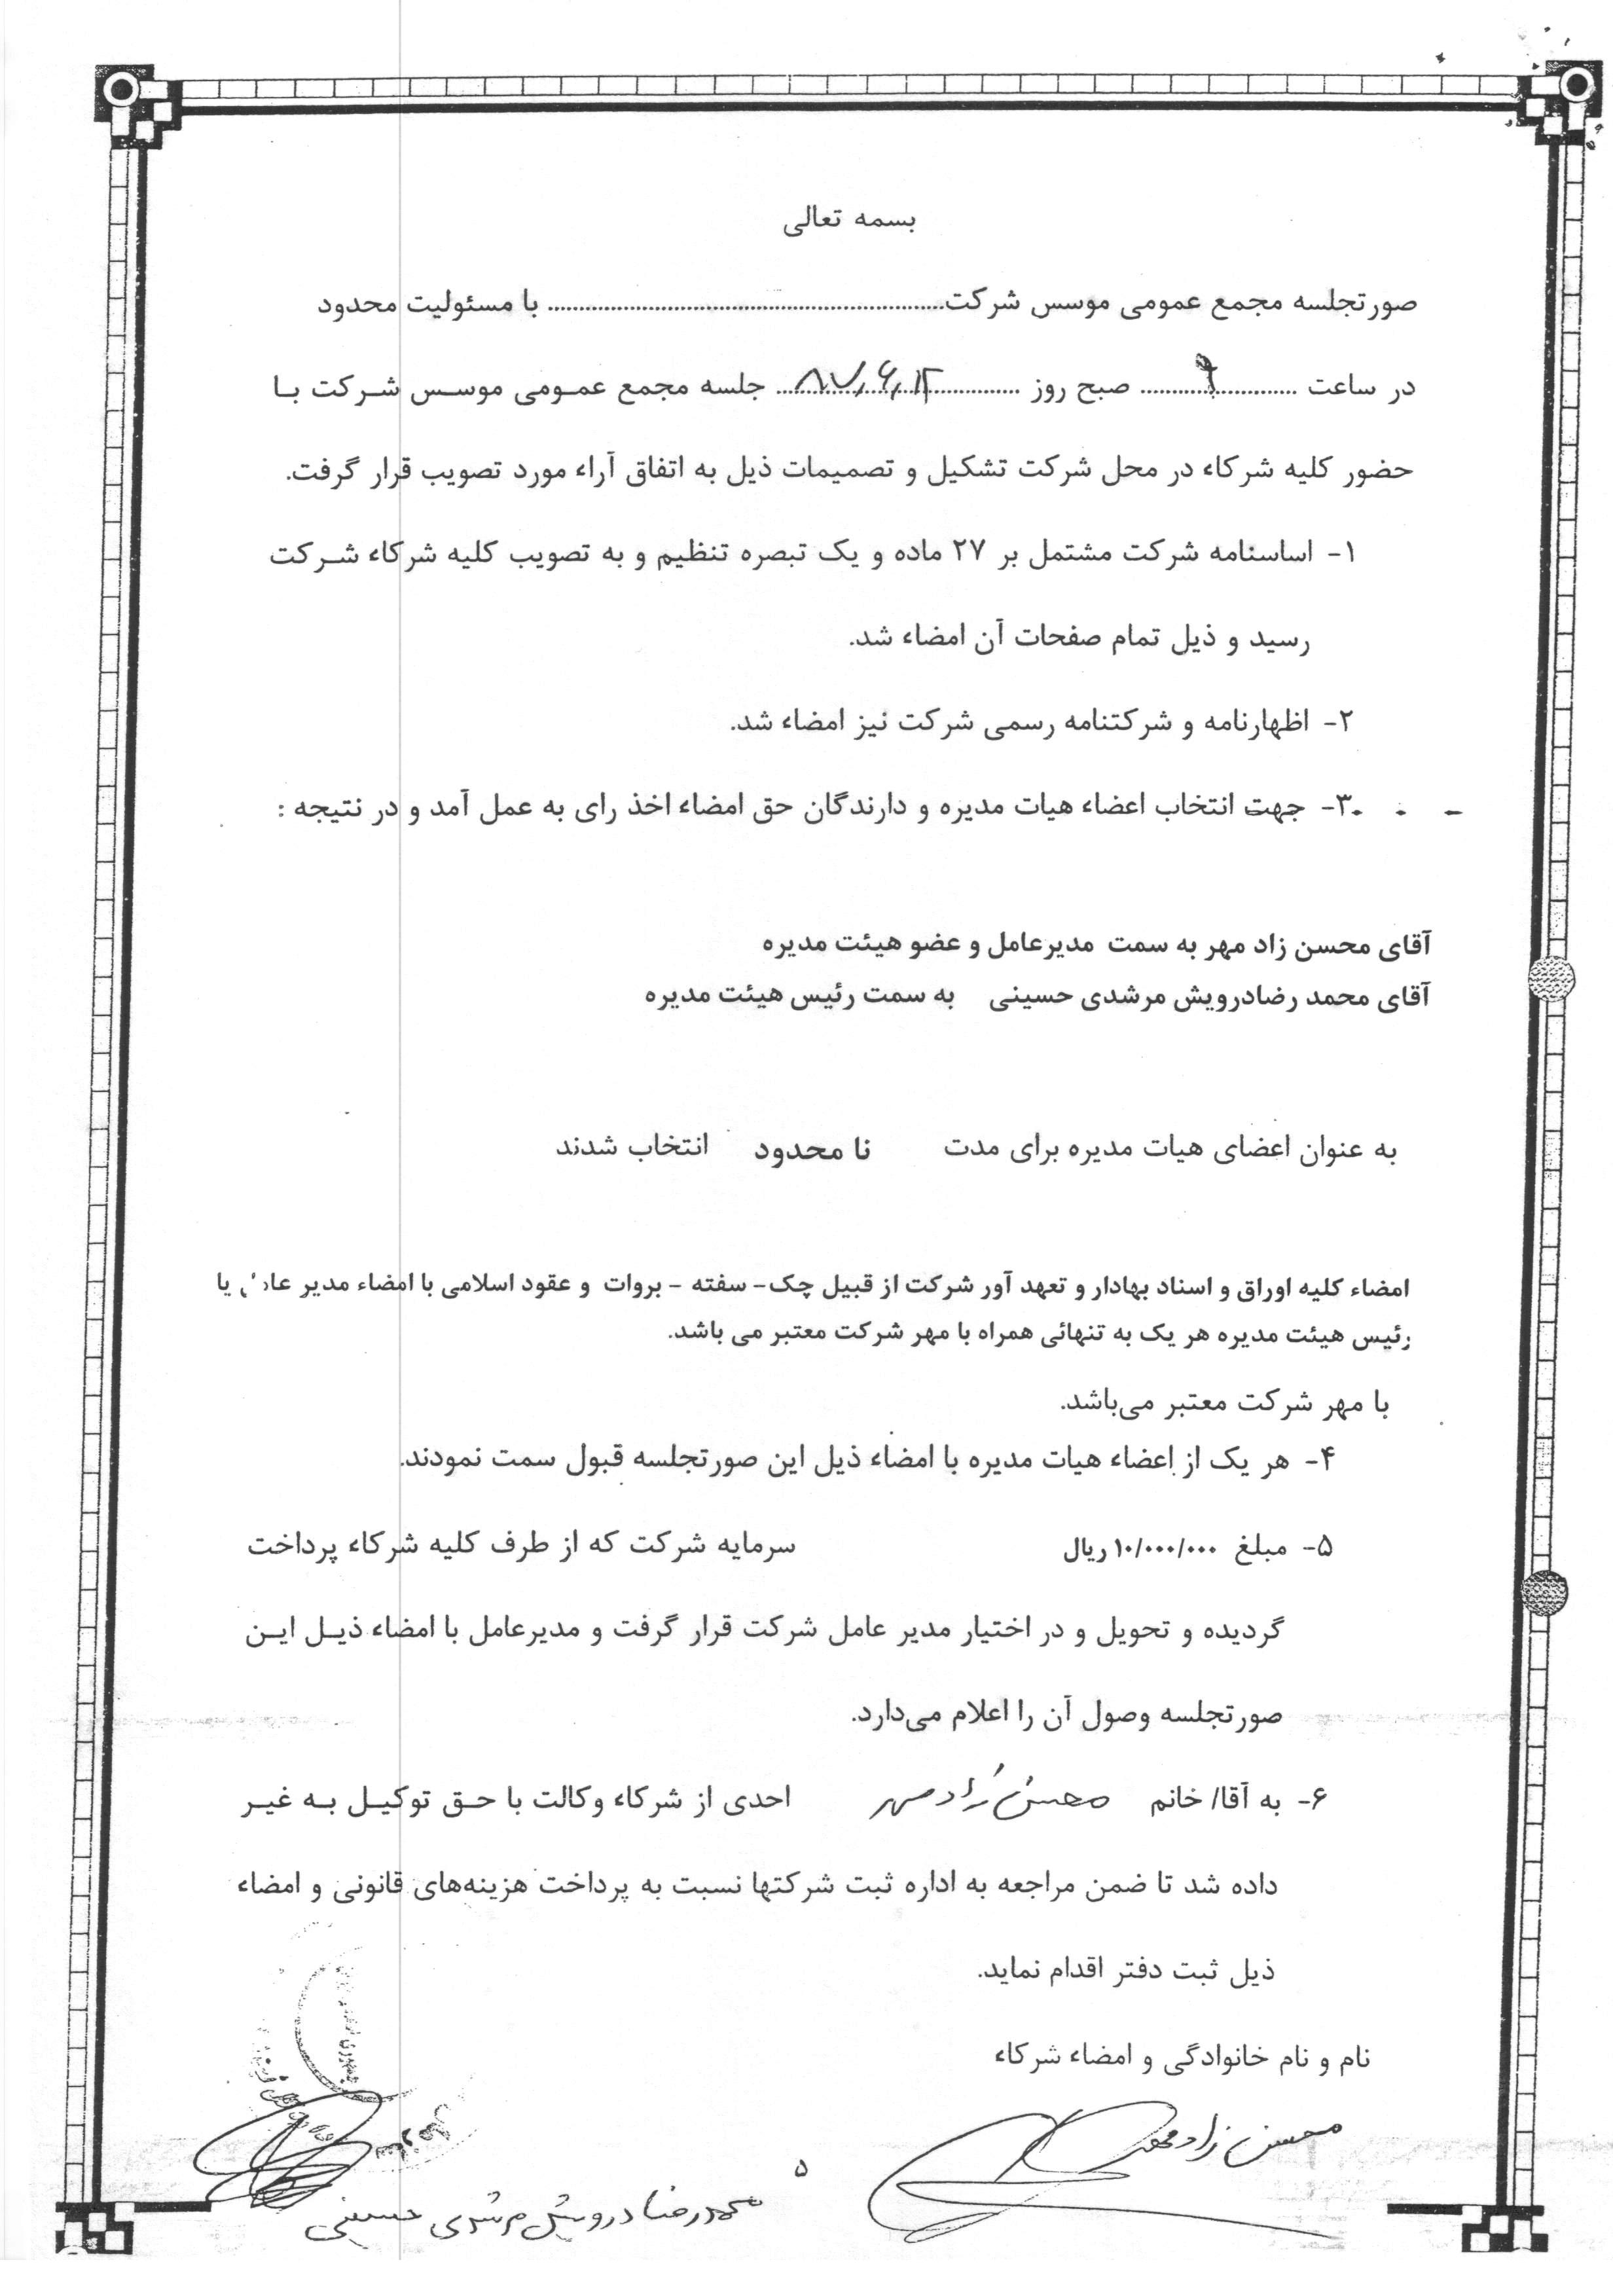 بسمه تعالی
صورتجلسه مجمع عمومی موسس شرکت............................................................... با مسئولیت محدود
در ساعت ............۹............ صبح روز ............۸۷,۶,۱۲............ جلسه مجمع عمومی موسس شرکت با
حضور کلیه شرکاء در محل شرکت تشکیل و تصمیمات ذیل به اتفاق آراء مورد تصویب قرار گرفت.
۱- اساسنامه شرکت مشتمل بر ۲۷ ماده و یک تبصره تنظیم و به تصویب کلیه شرکاء شرکت
رسید و ذیل تمام صفحات آن امضاء شد.
۲- اظهارنامه و شرکتنامه رسمی شرکت نیز امضاء شد.
۳- جهت انتخاب اعضاء هیات مدیره و دارندگان حق امضاء اخذ رای به عمل آمد و در نتیجه :
آقای محسن زاد مهر به سمت مدیرعامل و عضو هیئت مدیره
آقای محمد رضادرویش مرشدی حسینی به سمت رئیس هیئت مدیره
به عنوان اعضای هیات مدیره برای مدت نا محدود انتخاب شدند
امضاء کلیه اوراق و اسناد بهادار و تعهد آور شرکت از قبیل چک- سفته - بروات و عقود اسلامی با امضاء مدیر عامل یا
رئیس هیئت مدیره هر یک به تنهائی همراه با مهر شرکت معتبر می باشد.
با مهر شرکت معتبر می‌باشد.
۴- هر یک از اعضاء هیات مدیره با امضاء ذیل این صورتجلسه قبول سمت نمودند.
۵- مبلغ ۱۰/۰۰۰/۰۰۰ ریال سرمایه شرکت که از طرف کلیه شرکاء پرداخت
گردیده و تحویل و در اختیار مدیر عامل شرکت قرار گرفت و مدیرعامل با امضاء ذیل این
صورتجلسه وصول آن را اعلام می‌دارد.
۶- به آقا/ خانم محسن زاد مهر احدی از شرکاء وکالت با حق توکیل به غیر
داده شد تا ضمن مراجعه به اداره ثبت شرکتها نسبت به پرداخت هزینه‌های قانونی و امضاء
ذیل ثبت دفتر اقدام نماید.
نام و نام خانوادگی و امضاء شرکاء
محسن زاد مهر
محمدرضا درویش مرشدی حسینی
۵